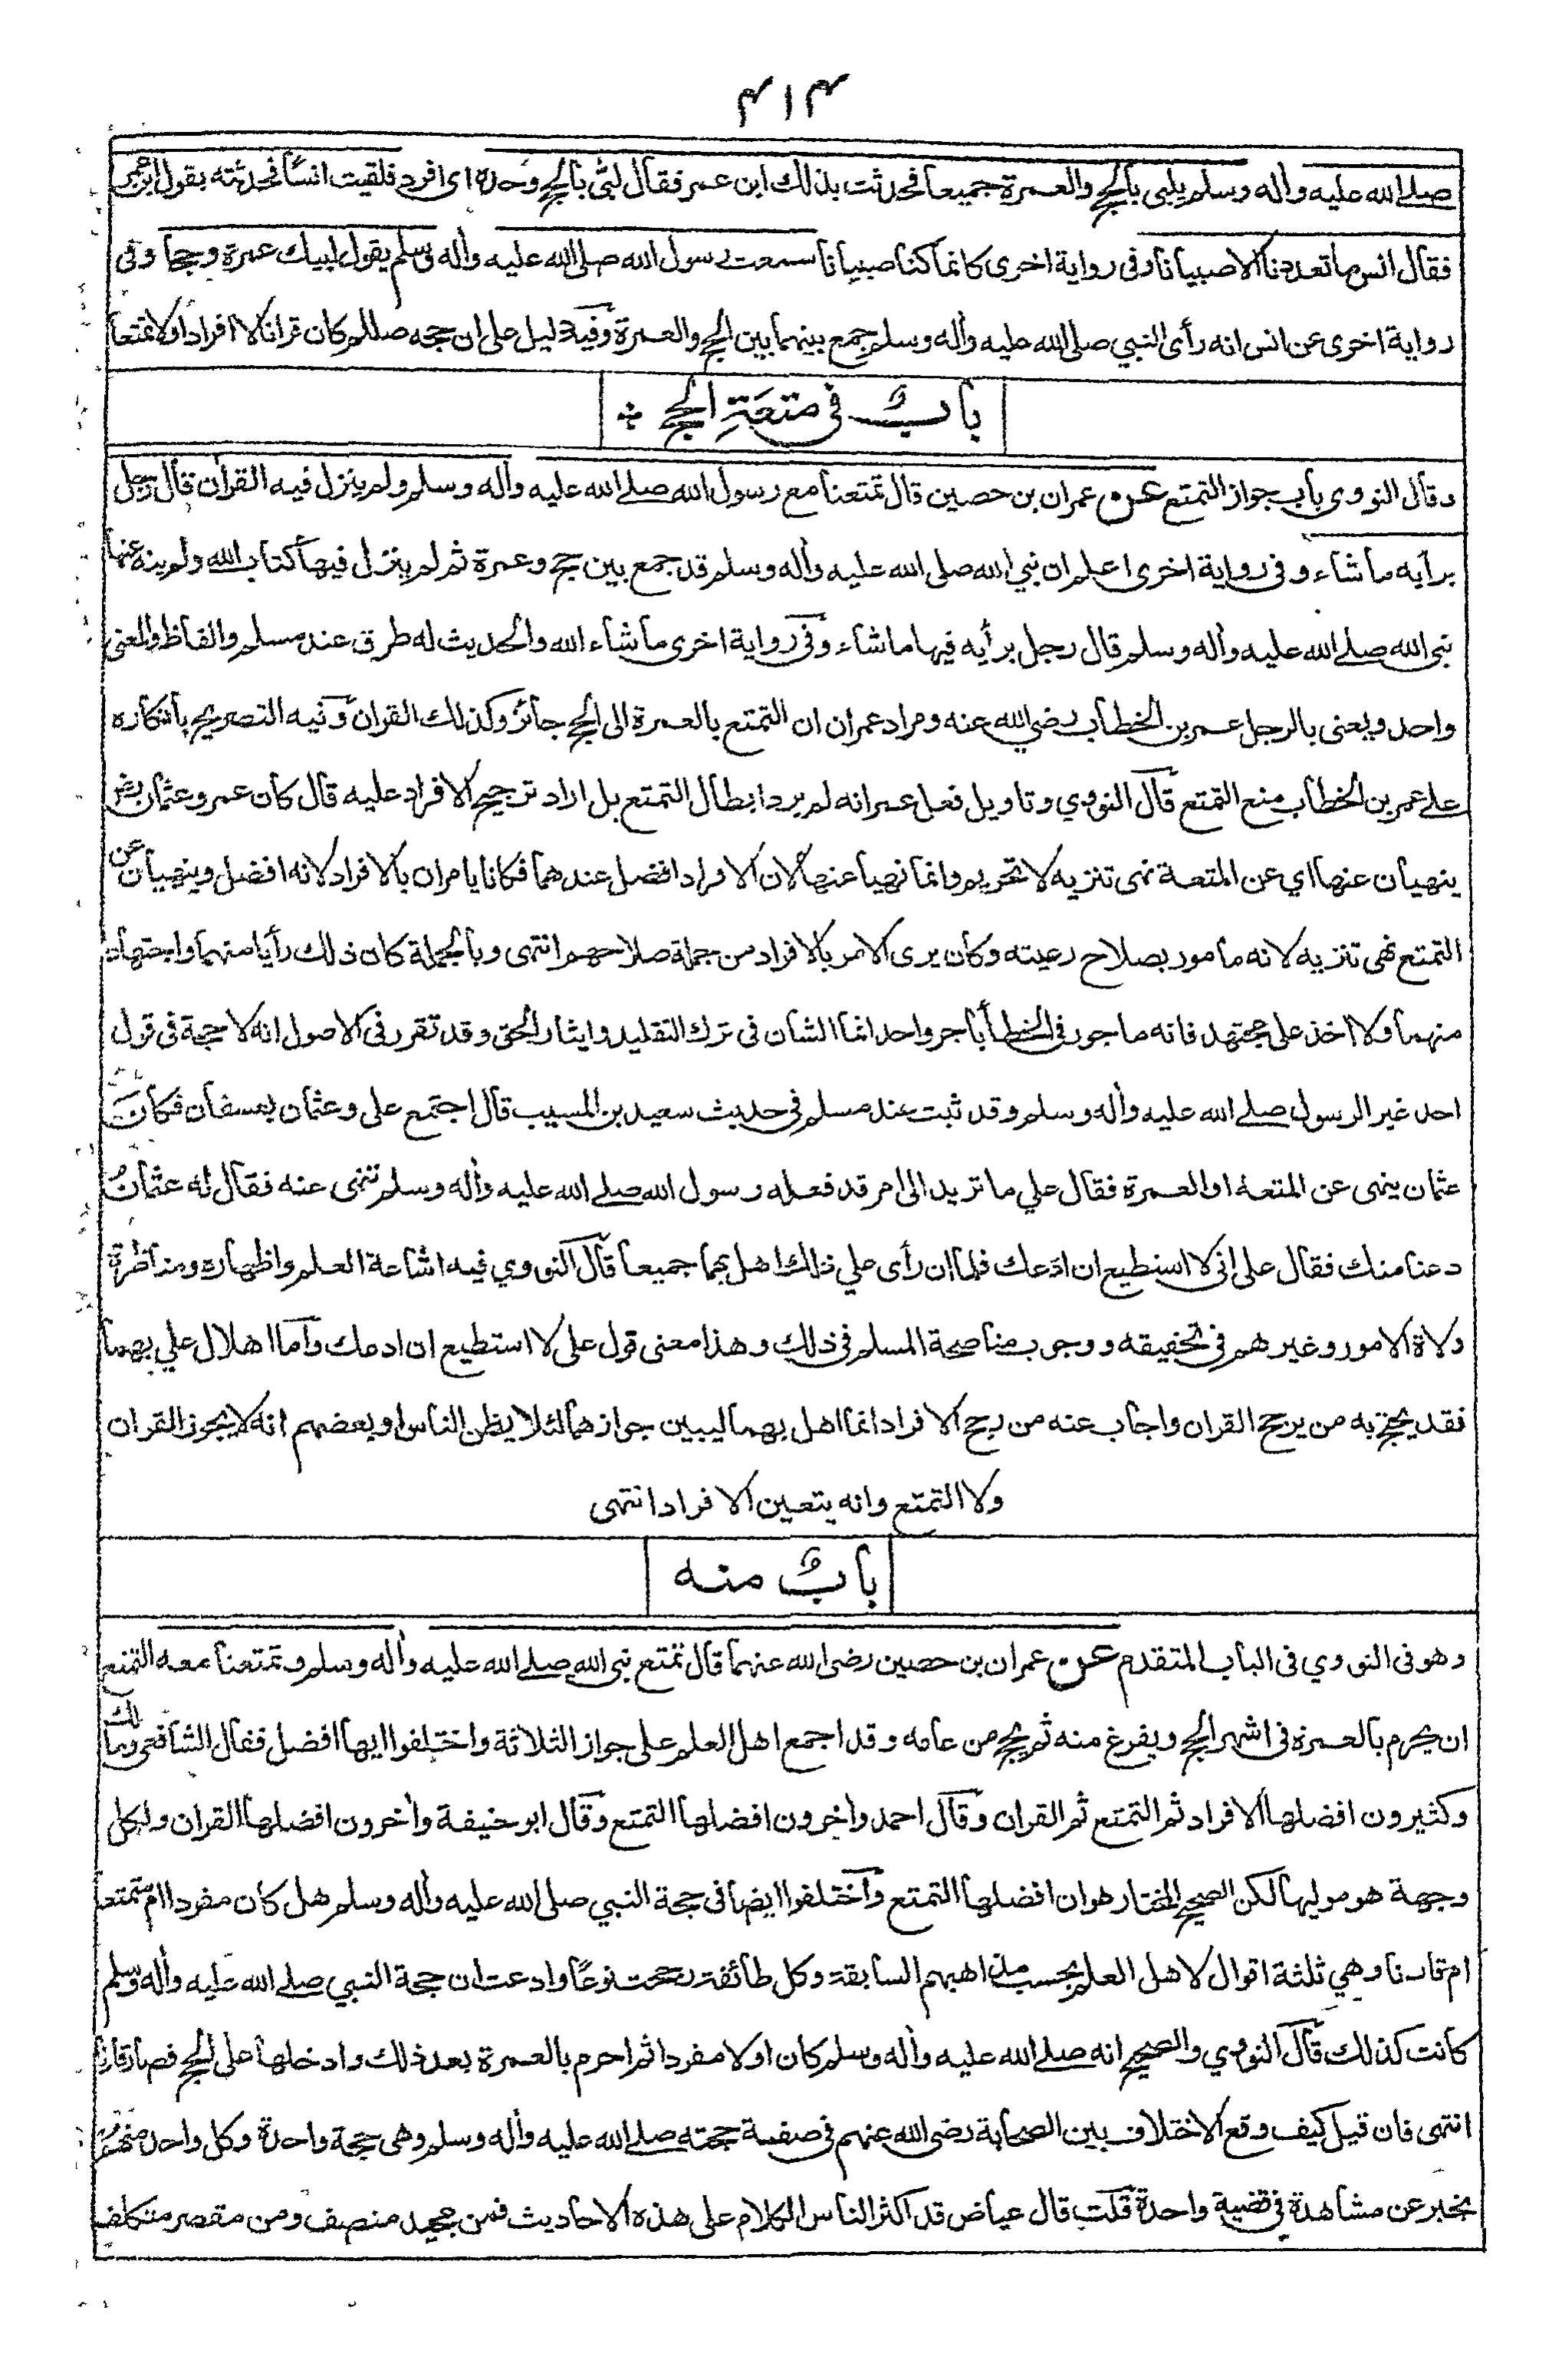 ٤١٤
صلے الله عليه وأله وسلم يلبى بالحج والعمرة جميعا فحدثت بذلك ابن عمر فقال لبّى بالحج وحده اى افرد فلقيت انسًا فحدثته بقول ابن عمر
فقال انس ما تعدوننا الا صبيانا وفى رواية اخرى كانما كنا صبيانا سمعت رسول الله صلى الله عليه وأله وسلم يقول لبيك عمرة وحجا وفى
رواية اخرى عن انس انه رأى النبي صلى الله عليه وأله وسلم جمع بينهما بين الحج والعمرة وفيه دليل على ان حجه صللم كان قرانا لا افرادا ولا تمتعا
باب فى متعة الحج
وقال النووى باب جواز التمتع عن عمران بن حصين قال تمتعنا مع رسول الله صلے الله عليه وأله وسلم ولم ينزل فيه القرأن قال رجل
برأيه ما شاء وفى رواية اخرى اعلم ان نبي الله صلى الله عليه وأله وسلم قد جمع بين حج وعمرة ثم لم ينزل فيها كتاب الله ولم ينه عنها
نبى الله صلے الله عليه وأله وسلم قال رجل برأيه فيها ما شاء وفى رواية اخرى ما شاء الله والحديث له طرق عند مسلم والفاظ والمعنى
واحد ويعنى بالرجل عمر بن الخطاب رضي الله عنه ومراد عمران ان التمتع بالعمرة الى الحج جائز وكذلك القران وفيه التصريح بانكاره
على عمر بن الخطاب منع التمتع قال النووي وتاويل فعل عمر انه لم يرد ابطال التمتع بل اراد ترجيح الافراد عليه قال كان عمر وعثمان رض
ينهيان عنها اي عن المتعة نهى تنزيه لا تحريم وانما نهيا عنها لان الافراد افضل عندهما فكانا يامران بالافراد لانه افضل وينهيان عن
التمتع نهى تنزيه لانه مأمور بصلاح رعيته وكان يرى الامر بالافراد من جملة صلاحهم انتهى وبالجملة كان ذلك رأيا منهما واجتهاد
منهما ولا اخذ على مجتهد فانه ماجور فى الخطأ باجر واحد انما الشان فى ترك التقليد وايثار الحق وقد تقرر فى الاصول انه لا حجة فى قول
احد غير الرسول صلے الله عليه وأله وسلم وقد ثبت عند مسلم فى حديث سعيد بن المسيب قال اجتمع على وعثمان بعسفان فكان
عثمان ينهى عن المتعة او العمرة فقال علي ما تريد الى امر قد فعله رسول الله صلے الله عليه وأله وسلم تنهى عنه فقال له عثمان
دعنا منك فقال على انى لا استطيع ان ادعك فلما ان رأى علي ذلك اهل بهما جميعا قال النووي فيه اشاعة العلم واظهاره ومناظرة
ولاة الامور وغيرهم فى تحقيقه ووجوب مناصحة المسلم فى ذلك وهذا معنى قول على لا استطيع ان ادعك وأما اهلال علي بهما
فقد يحتج به من يرجح القران واجاب عنه من رجح الافراد انما اهل بهما ليبين جوازهما لئلا يظن الناس او بعضهم انه لا يجوز القران
ولا التمتع وانه يتعين الافراد انتهى
باب منه
وهو فى النووي فى الباب المتقدم عن عمران بن حصين رضى الله عنهما قال تمتع نبى الله صلے الله عليه وأله وسلم وتمتعنا معه التمتع
ان يحرم بالعمرة فى اشهر الحج ويفرغ منه ثم يحج من عامه وقد اجمع اهل العلم على جواز الثلاثة واختلفوا ايها افضل فقال الشافعى ومالك
وكثيرون افضلها الافراد ثم التمتع ثم القران وقال احمد وأخرون افضلها التمتع وقال ابو حنيفة وأخرون افضلها القران ولكل
وجهة هو موليها لكن الصحيح المختار هو ان افضلها التمتع وأختلفوا ايضا فى حجة النبي صلى الله عليه وأله وسلم هل كان مفردا ام متمتعا
ام قارنا وهي ثلثة اقوال لاهل العلم بحسب مذاهبهم السابقة وكل طائفة رجحت نوعًا وادعت ان حجة النبي صلے الله عليه وأله وسلم
كانت كذلك قال النووي والصحيح انه صلے الله عليه وأله وسلم كان اولا مفردا ثم احرم بالعمرة بعد ذلك وادخلها على الحج فصار قارنا
انتهى فان قيل كيف وقع الاختلاف بين الصحابة رضى الله عنهم فى صفة حجته صلے الله عليه وأله وسلم وهى حجة واحدة وكل واحد منهم
يخبر عن مشاهدة فى قضية واحدة قلت قال عياض قد اكثر الناس الكلام على هذه الاحاديث فمن مجيد منصف ومن مقصر متكلف